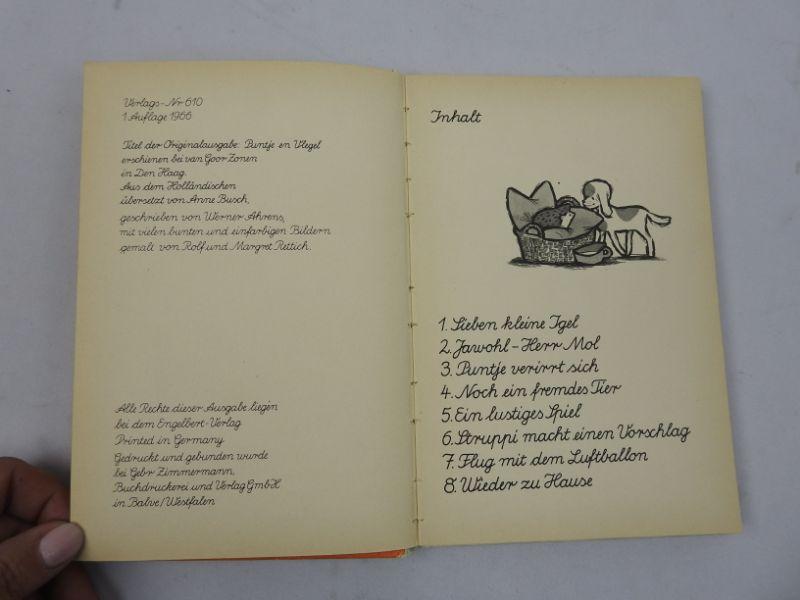 Verlags-Nr 610
1 Auflage 1966
Titel der Originalausgabe: Puntje en Vlegel
erschienen bei van Goor Zonen
in Den Haag.
Aus dem Holländischen
übersetzt von Anne Busch,
geschrieben von Werner Ahrens,
mit vielen bunten und einfarbigen Bildern
gemalt von Rolf und Margret Rettich.
Alle Rechte dieser Ausgabe liegen
bei dem Engelbert-Verlag
Printed in Germany
Gedruckt und gebunden wurde
bei Gebr Zimmermann,
Buchdruckerei und Verlag GmbH
in Balve/Westfalen
Inhalt
1. Sieben kleine Igel
2. Jawohl - Herr Mol
3. Puntje verirrt sich
4. Noch ein fremdes Tier
5. Ein lustiges Spiel
6. Struppi macht einen Vorschlag
7. Flug mit dem Luftballon
8. Wieder zu Hause